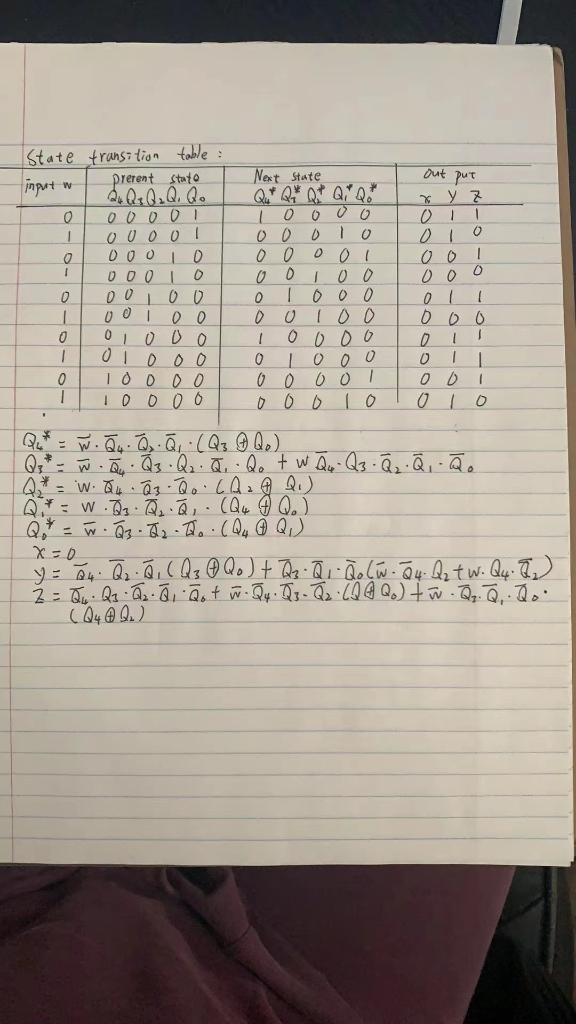 State transition table :
input w prerent state Next state Out put
Q₄ Q₃ Q₂ Q₁ Q₀ Q₄* Q₃* Q₂* Q₁* Q₀* x y z
0 0 0 0 0 1 1 0 0 0 0 0 1 1
1 0 0 0 0 1 0 0 0 1 0 0 1 0
0 0 0 0 1 0 0 0 0 0 1 0 0 1
1 0 0 0 1 0 0 0 1 0 0 0 0 0
0 0 0 1 0 0 0 1 0 0 0 0 1 1
1 0 0 1 0 0 0 0 1 0 0 0 0 0
0 0 1 0 0 0 1 0 0 0 0 0 1 1
1 0 1 0 0 0 0 1 0 0 0 0 1 1
0 1 0 0 0 0 0 0 0 0 1 0 0 1
1 1 0 0 0 0 0 0 0 1 0 0 1 0
Q₄* = w̅ · Q̅₄ · Q̅₂ · Q̅₁ · (Q₃ ⊕ Q₀)
Q₃* = w̅ · Q̅₄ · Q̅₃ · Q₂ · Q̅₁ · Q̅₀ + w Q̅₄ · Q₃ · Q̅₂ · Q̅₁ · Q̅₀
Q₂* = w · Q̅₄ · Q̅₃ · Q̅₀ · (Q₂ ⊕ Q₁)
Q₁* = w · Q̅₃ · Q̅₂ · Q̅₁ · (Q₄ ⊕ Q₀)
Q₀* = w̅ · Q̅₃ · Q̅₂ · Q̅₀ · (Q₄ ⊕ Q₁)
x = 0
y = Q̅₄ · Q̅₂ · Q̅₁ (Q₃ ⊕ Q₀) + Q̅₃ · Q̅₁ · Q̅₀ (w̅ · Q̅₄ · Q₂ + w · Q₄ · Q̅₂)
z = Q̅₄ · Q₃ · Q̅₂ · Q̅₁ · Q̅₀ + w̅ · Q̅₄ · Q̅₃ · Q̅₂ · (Q₁ ⊕ Q₀) + w̅ · Q̅₃ · Q̅₁ · Q̅₀ ·
(Q₄ ⊕ Q₂)